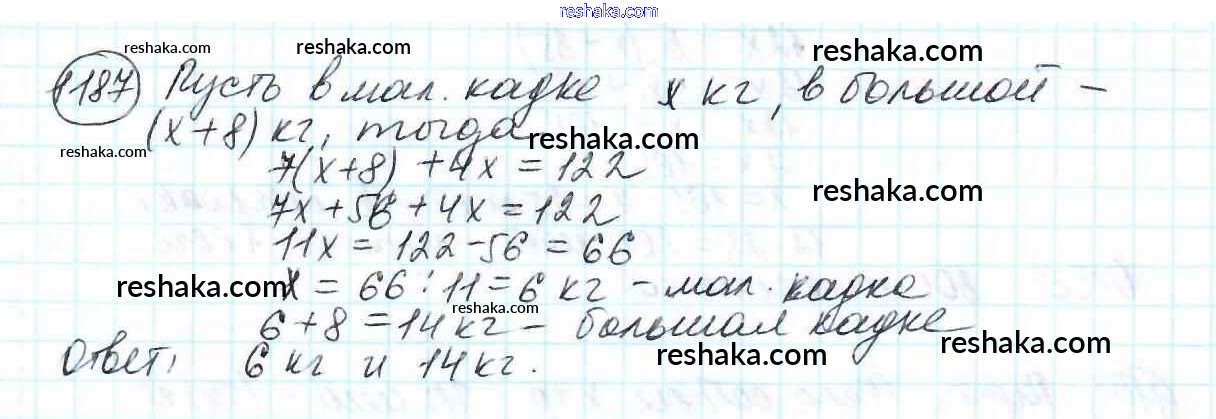 reshaka.com
reshaka.com reshaka.com reshaka.com
1187 Пусть в мал. кадке x кг, в большой –
(x+8) кг, тогда reshaka.com
reshaka.com
7(x+8) + 4x = 122
reshaka.com
7x+56+4x=122
11x = 122-56 = 66
reshaka.com x = 66:11=6 кг – мал. кадка
reshaka.com
6+8=14 кг – большая кадке
reshaka.com reshaka.com
Ответ: 6 кг и 14 кг.